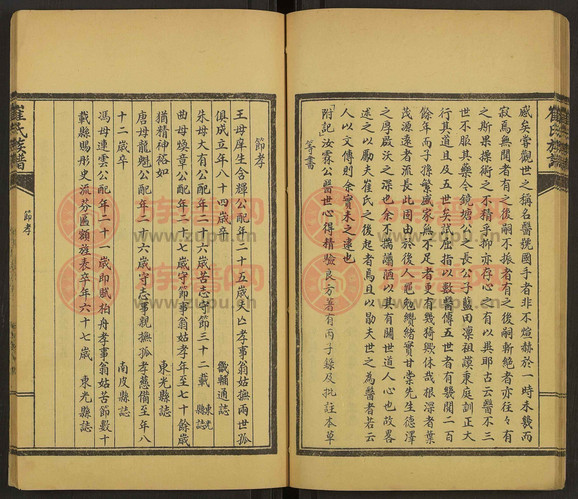 感矣嘗觀世之稱名醫號國手者非不煊赫於一時未幾而
寂焉無聞者有之後嗣不振者有之後嗣斬絶者亦往々有
之斯果操術之不精乎抑亦存心之有以異耶古云醫不三
世不服其藥今鏡塘公之長公子藍田凛祖謨東庭訓正大
行其道且及五世矣試屈指以數醫傳五世者有幾閱二百
餘年丙子孫繁盛家無不足者更有幾猗歟休哉根深者葉
茂源遠者流長此固由於後人
之厚啟沃之深也余不揣譾陋以其有關世道人心也故畧
述之以勵夫崔氏之後起者焉且以勖夫世之為醫者若云
人以文傳則余實未之逮也
附記 汝霖公醫世心得精驗良方著有丙子錄及批註本草
等書
崔氏族譜
節孝
王母庠生含輝公配年二十五歲夫亾孝事翁姑撫兩世孤
俱成立年八十四歲卒 畿輔通誌
朱母大有公配年二十六歲苦志守節三十二載 東光縣誌
曲母煥章公配年二十七歲守節事翁姑孝年至七十餘歲
猶精神裕如 東光縣誌
唐母龍魁公配年二十六歲守志事親撫孤孝慈備至年八
十二歲卒 南皮縣誌
馮母連雲公配年二十一歲即賦柏舟孝事翁姑苦節數十
載縣賜彤史流芬匾額旌表卒年六十七歲 東光縣誌
崔氏族譜
節孝
族譜网
www.zupu.cn
族譜网
www.zupu.cn